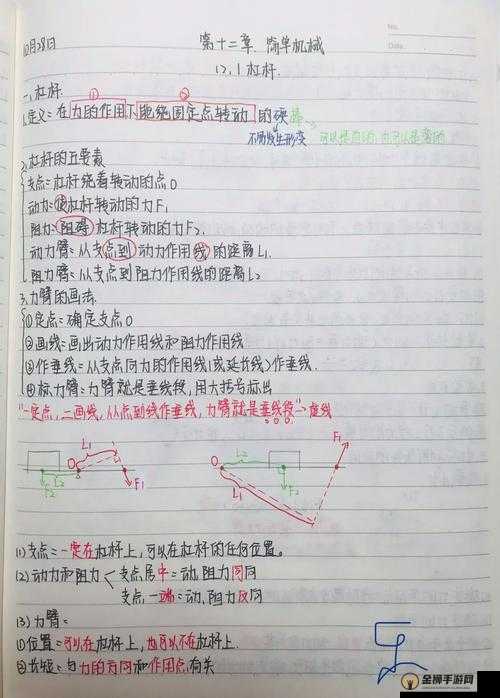 No.
Date.
10月28日
第十二章. 简单机械
12.1 杠杆.
一、杠杆
① ②
1.定义:在力的作用下能绕固定点转动的硬棒
不易发生形变 可以是直的,也可以是弯的
2.杠杆的五要素
支点=杠杆绕着转动的点O
动力=使杠杆转动的力F₁
阻力=阻碍杠杆转动的力F₂
动力臂=从支点到动力作用线的距离L₁
阻力臂=从支点到阻力作用线的距离L₂
3.力臂的画法
①定点=确定支点O
②画线=画出动力作用线和阻力作用线
③作垂线=从支点向力的作用线(或延长线)作垂线
④标力臂=力臂就是垂线段,用大括号标出
"一定点,二画线,从点到线作垂线,力臂就是垂线段"→虚线
O L₁ L₂ F₂ F₁
O L₂ F₂ L₁ F₁
(1)支点=一定在杠杆上,可以在杠杆的任何位置。
(2)动力和阻力 支点居中=动,阻力同向
支点一端=动,阻力反向
(3)力臂=
①位置=可以在杠杆上,也可以不在杠杆上
②长短=与力的方向和作用点有关
金狮手游网